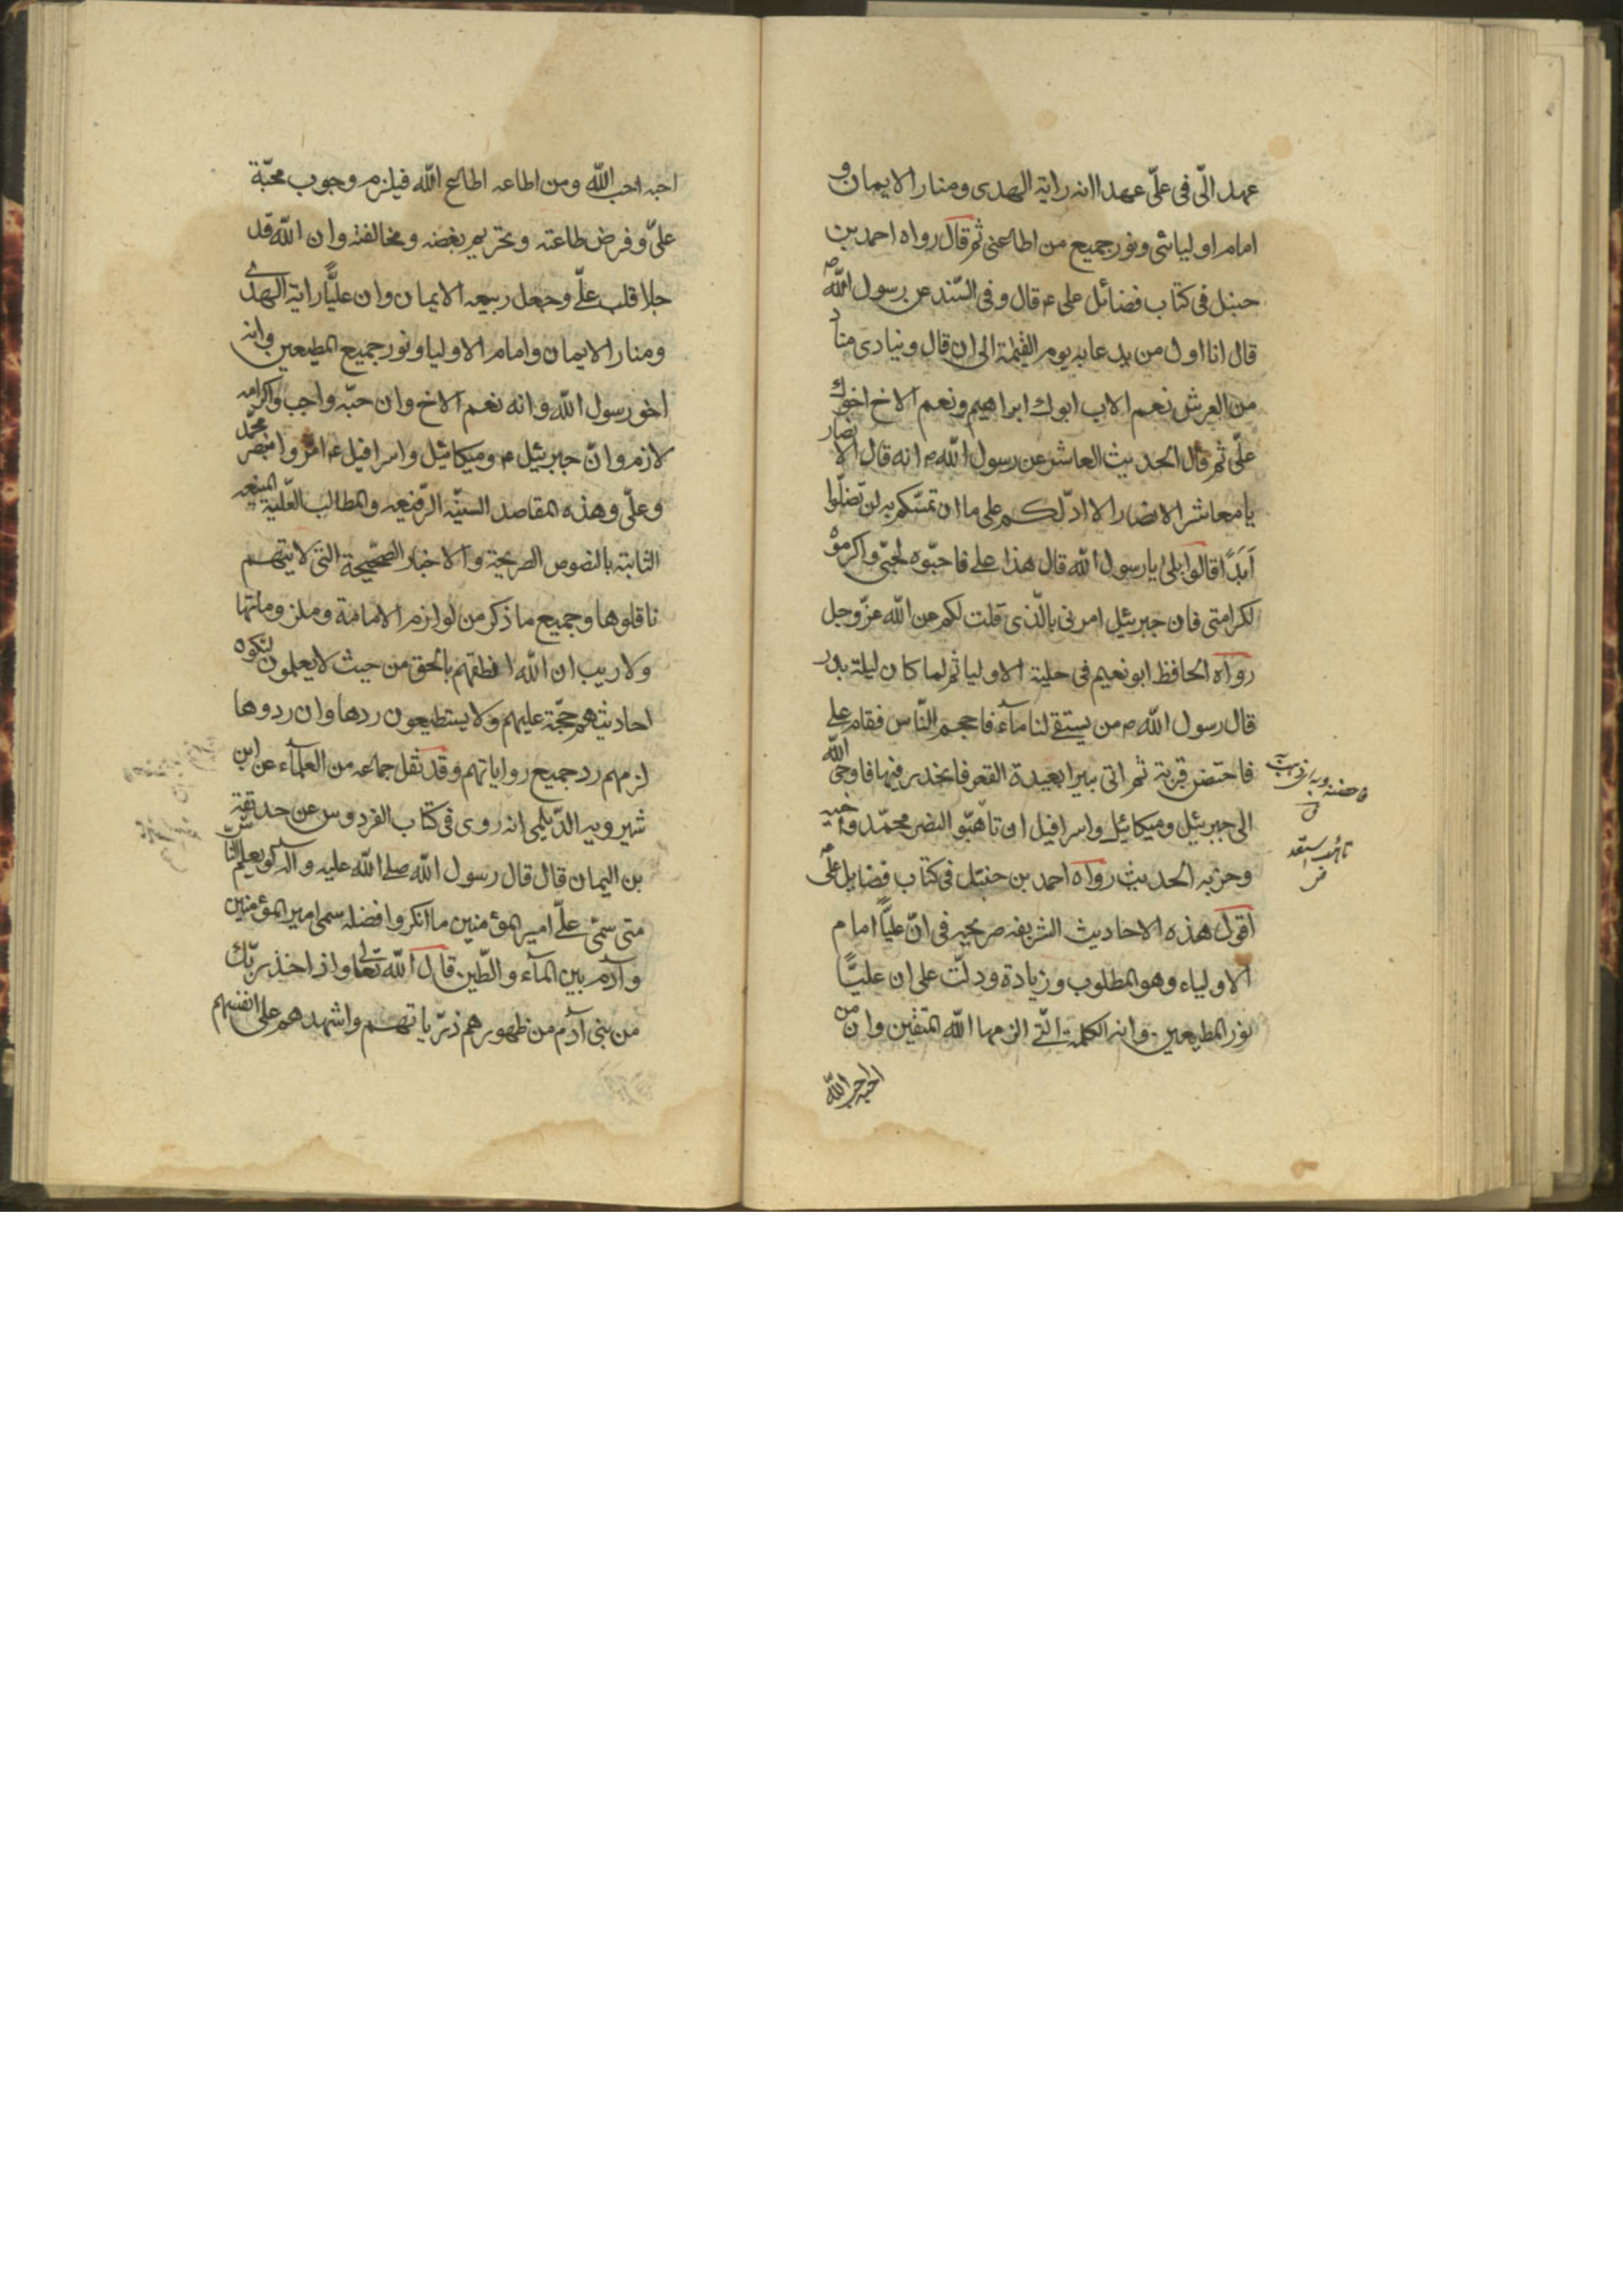 عهد الّی فی علّی عهدا انه رایة الهدی ومنار الایمان و
امام اولیائی ونور جمیع من اطاعنی ثم قال رواه احمد بن
حنبل فی کتاب فضائل علی ع قال وفی السّند عن رسول اللّه ص
قال انا اول من یدعا به یوم القیٰمة الی ان قال وینادی مناد
من العرش نعم الاب ابوك ابراهیم ونعم الاخ اخوك
علّی ثم قال الحدیث العاشر عن رسول اللّه ص انه قال الانصار
یا معاشر الانصار الا ادّلکم علی ما ان تمسّکتم به لن تضلّوا
اَبَدًا قالوا بلی یا رسول اللّه قال هذا علی فاحبّوه لحبّی واکرموه
لکرامتی فان جبرئیل امرنی بالّذی قلت لکم عن اللّه عزّ وجل
رواه الحافظ ابو نعیم فی حلیة الاولیا ثم لما کان لیلة بدر
قال رسول اللّه ص من یستقی لنا مآء فاحجم النّاس فقام علی
فاحتضن قربة ثم اتی بیرا بعیدة القعر فانحدر فیها فاوحی اللّه
الی جبرئیل ومیکائیل واسرافیل ان تاهبّو النصر محمّد واخیه
وحزبه الحدیث رواه احمد بن حنبل فی کتاب فضایل علی ع
اقول هذه الاحادیث الشریفه صریحه فی انّ علیًّا امام
الاولیاء وهو المطلوب وزیادة ودلّت علی ان علیًّا
نور المطیعین وانه الکلمة الّتی الزمها اللّه المتقین وان من
احبه احب اللّه
احبه احب اللّه ومن اطاعه اطاع اللّه فیلزم وجوب محبّة
علیّ وفرض طاعته وتحریم بغضه ومخالفته وان اللّه قد
جلا قلب علّی وجعل ربیعه الایمان وان علیًّا رایة الهدی
ومنار الایمان وامام الاولیا ونور جمیع المطیعین وانه
اخو رسول اللّه وانه نعم الاخ وان حبّه واجب واکرامه
لازم وانّ جبرئیل ع ومیکائیل واسرافیل ع امروا بنصر محمّد
وعلّی وهذه المقاصد السنیّه الرّفیعه والمطالب العّلیة المنیعه
الثابتة بالنصوص الصریحة والاخبار الصّحیحة التی لا یتهم
ناقلوها وجمیع ما ذکر من لوازم الامامة وملزوماتها
ولا ریب ان اللّه انطقهم بالحق من حیث لا یعلمون لتکون
احادیثهم حجّة علیهم ولا یستطیعون ردها وان ردوها
لزمهم رد جمیع روایاتهم وقد نقل جماعه من العلمآء عن ابن
شیرویه الدّیلمی انه روی فی کتاب الفردوس عن حذیفة
بن الیمان قال قال رسول اللّه صلی اللّه علیه واله لو یعلم النّاس
متی سمّی علّی امیر المؤمنین ما انکروا فضله سمی امیر المؤمنین
وآدم بین المآء والطّین قال اللّه تعالی واذ اخذ ربّك
من بنی آدم من ظهورهم ذرّیاتهم واشهدهم علی انفسهم